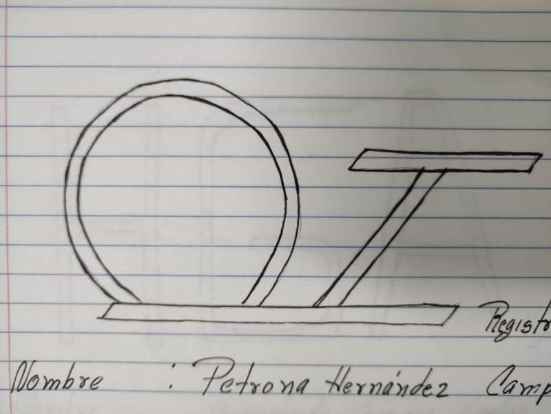 Registr
Nombre : Petrona Hernández Camp